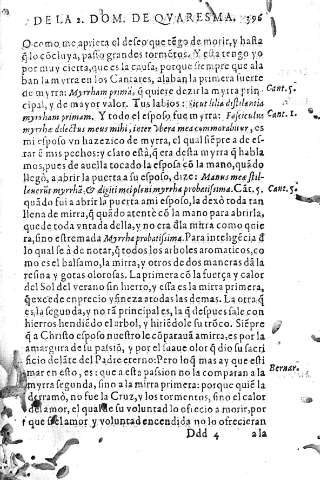 DE LA 2. DOM. DE QVARESMA. 396
O como me aprieta el deseo que tẽgo de morir, y hasta
q̃ lo cõcluya, passo grandes tormẽtos. Y esta tengo yo
por muy cierta, que es la causa, porque siempre que ala
ban la myrra en los Cantares, alaban la primera suerte
de myrra: Myrrham primã, q̃ quiere dezir la myrra prin-
cipal, y de mayor valor. Tus labios: sicut lilia distilantia
myrrham primam. Y todo el esposo, fue myrra: Fasciculus
myrrhæ dilectus meus mihi, inter vbera mea commorabitur, es
mi esposo vn hazezico de myrra, el qual siẽpre a de es-
tar ẽ mis pechos: y claro està, q̃ era desta myrra q̃ habla
mos, pues de auella tocado la esposa cõ la mano, quãdo
llegò, a abrir la puerta a su esposo, dize: Manus meæ stil-
lauerũt myrrhã, & digiti mei pleni myrrha probatissima. Cãt. 5.
quãdo fui a abrir la puerta ami esposo, la dexò toda tan
llena de mirra, q̃ quãdo atentè cõ la mano para abrirla,
que de toda vntada della, y no era d̃la mirra como quie
ra, sino estremada Myrrha probatissima. Para inteligẽcia d̃
lo qual se à de notar, q̃ todos los arboles aromaticos, co
mo es el balsamo, la mirra, y otros de dos maneras dã la
resina y gotas olorosas. La primera cõ la fuerça y calor
del Sol del verano sin hierro, y essa es la mirra primera,
q̃ excede en precio y fineza a todas las demas. La otra q̃
es, la segunda, y no rã principales, la q̃ despues sale con
hierros hendiẽdo el arbol, y hiriẽdole su trõco. Siẽpre
q̃ a Christo esposo nuestro le cõparauã amirra, es por la
amargura de su passiõ, y por el suaue olor q̃ dio su sacri
ficio delãte del Padre eterno: Pero lo q̃ mas ay que esti
mar en esto, es: que a esta passion no la comparan a la
myrra segunda, sino a la mirra primera: porque quiẽ la
derramò, no fue la Cruz, y los tormentos, sino el calor
del amor, el qual de su voluntad lo ofrecio a morir, por
que si el amor y voluntad encendida no lo ofrecieron
Ddd 4 a la
Cant. 5.
Cant. 1.
Cant. 5.
Bernar.